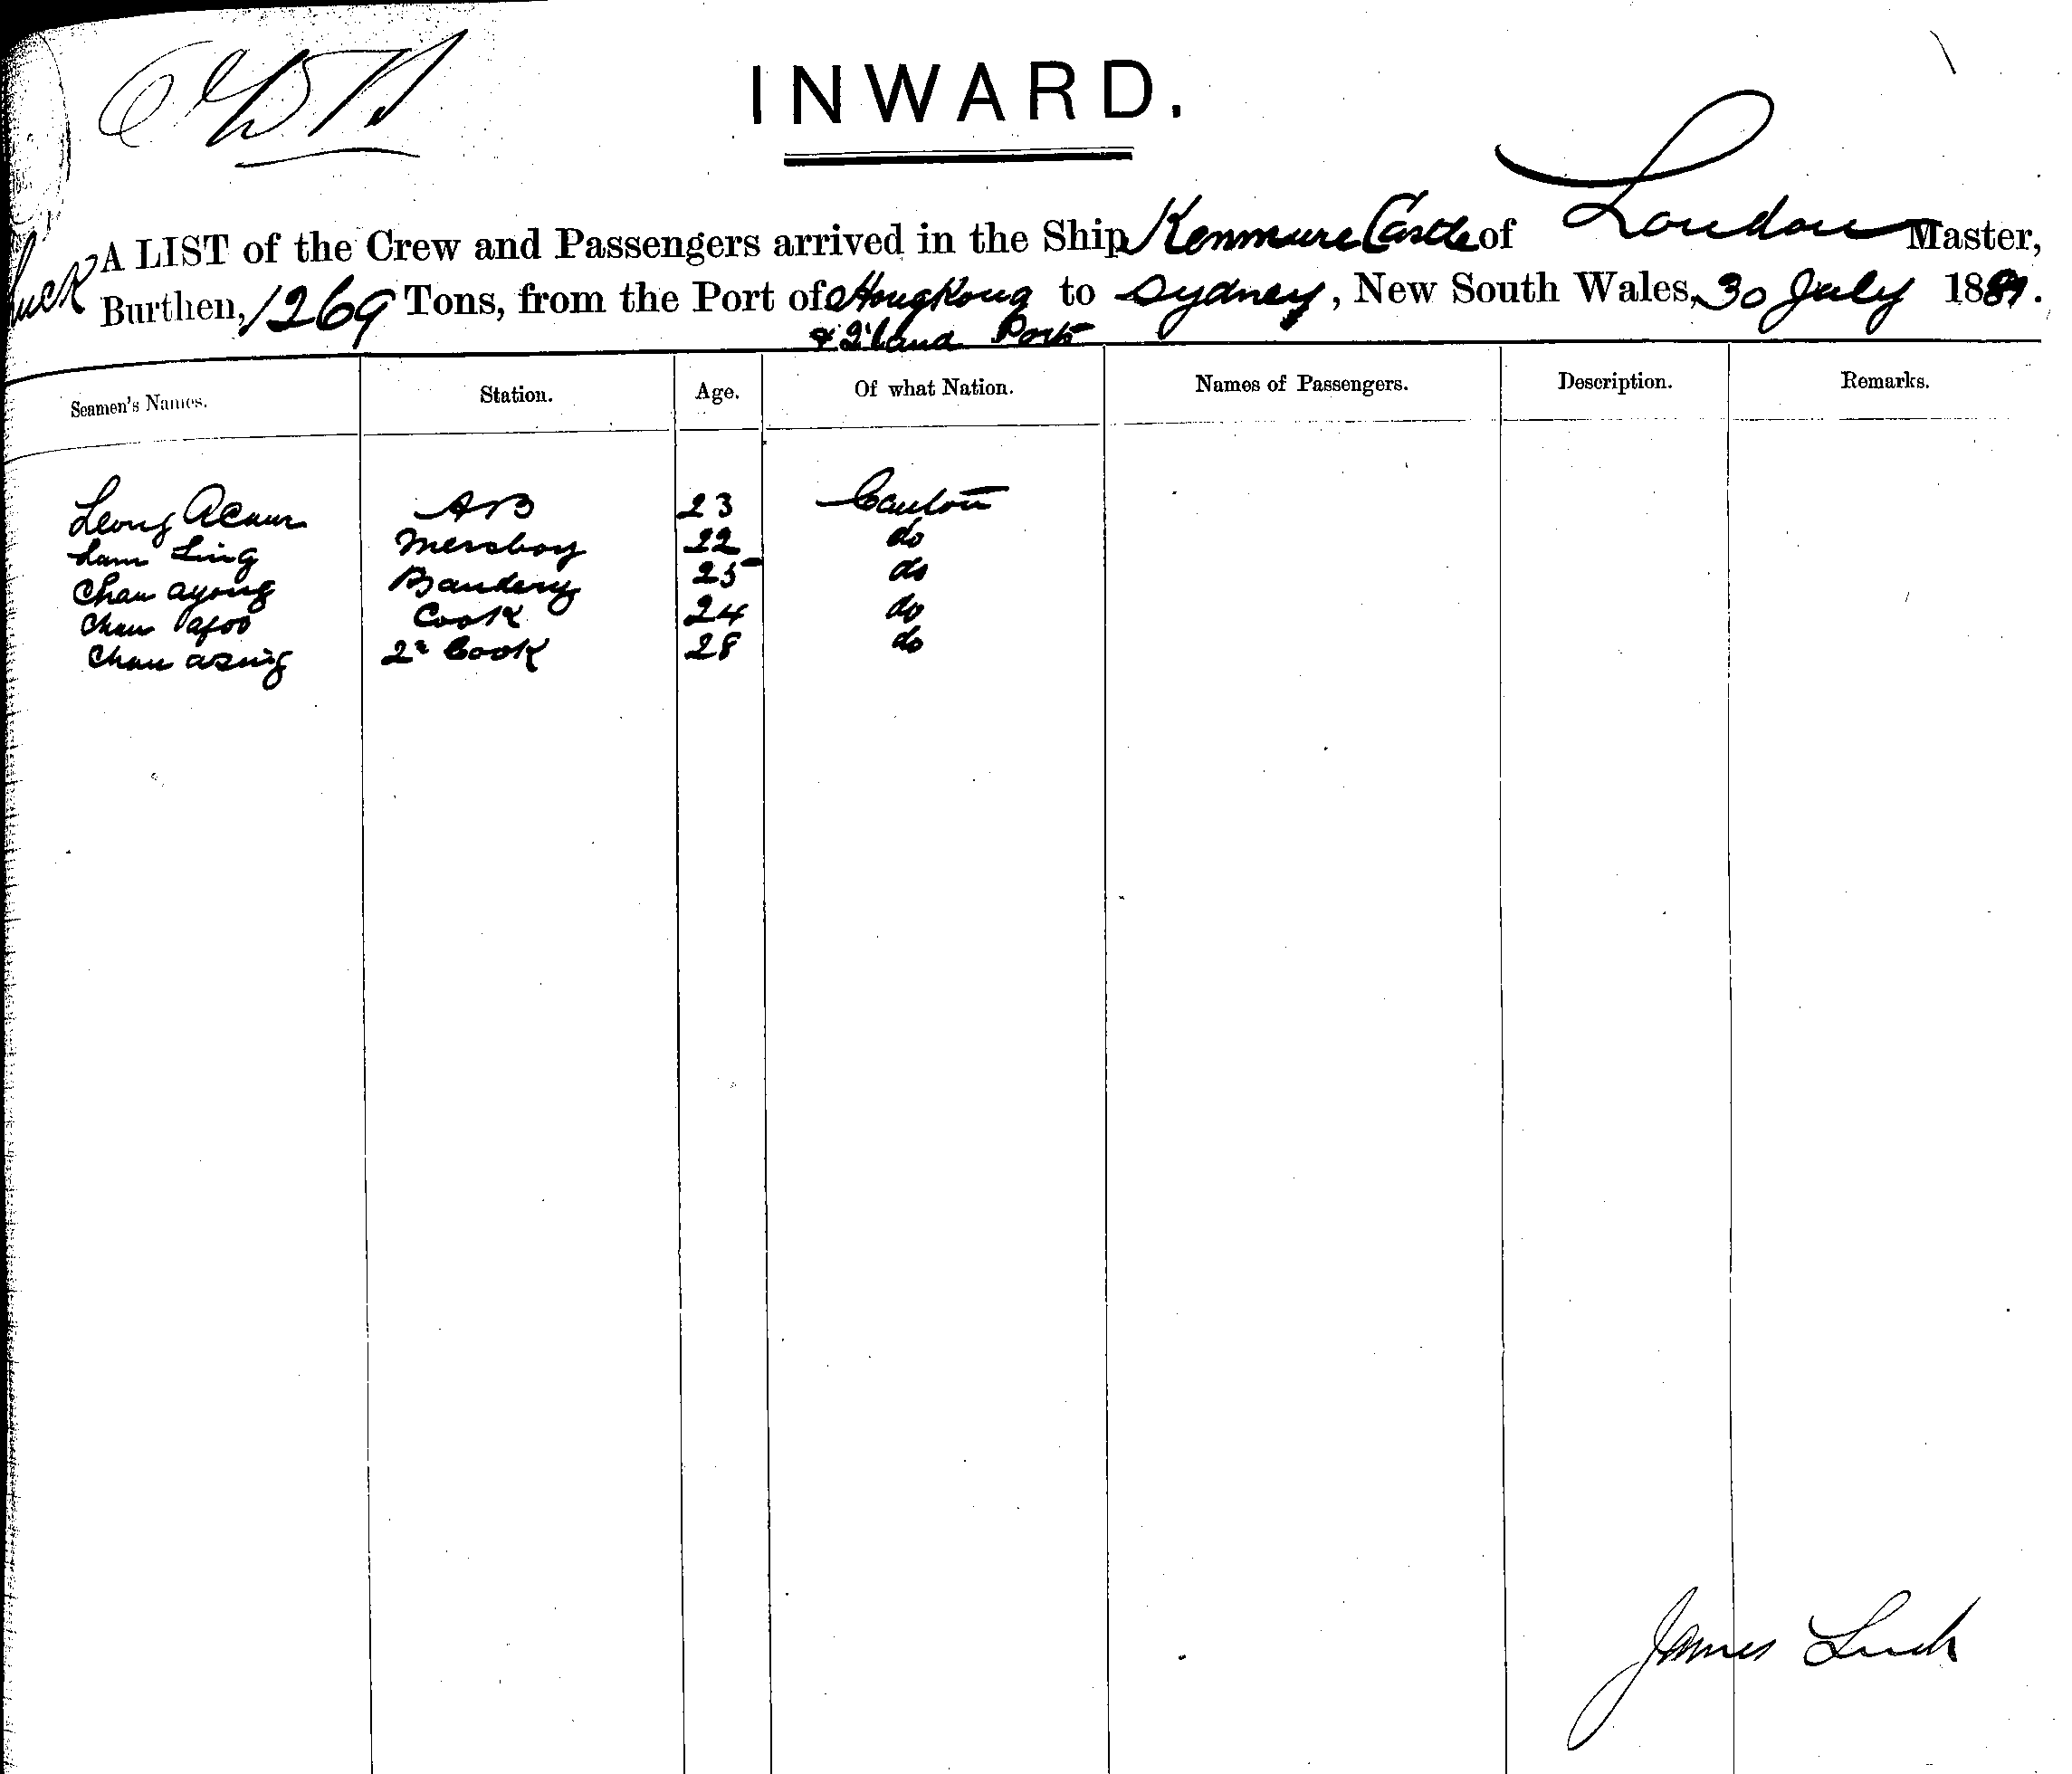 INWARD.
A LIST of the Crew and Passengers arrived in the Ship Kenmure Castle of London Master,
Luck Burthen, 1269 Tons, from the Port of Hong Kong to Sydney, New South Wales, 30 July 1889.
& I'land Ports
Seamen's Names. Station. Age. Of what Nation. Names of Passengers. Description. Remarks.
Leong AB 23 Canton
Lam Ling Messboy 22 do
Chan ayong 25 do
Chan afoo Cook 24 do
Chan asing 2 Cook 28 do
James Luck